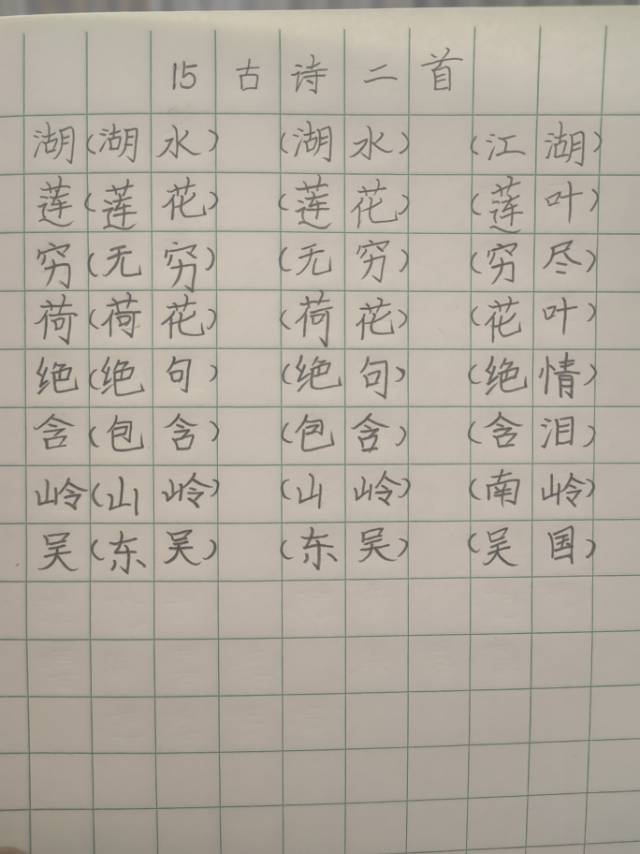 15 古诗二首
湖(湖水) (湖水) (江湖)
莲(莲花) (莲花) (莲叶)
穷(无穷) (无穷) (穷尽)
荷(荷花) (荷花) (花叶)
绝(绝句) (绝句) (绝情)
含(包含) (包含) (含泪)
岭(山岭) (山岭) (南岭)
吴(东吴) (东吴) (吴国)